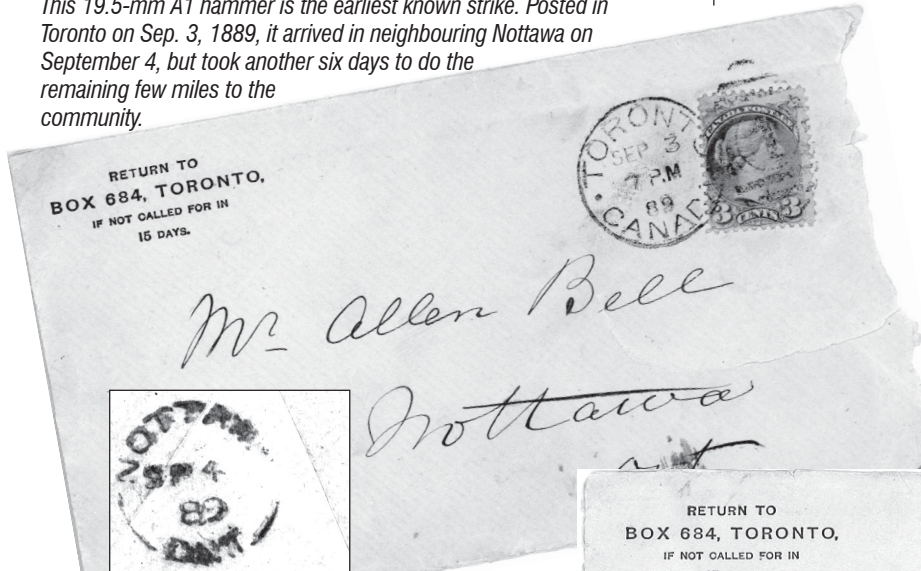 This 19.5-mm A1 hammer is the earliest known strike. Posted in
Toronto on Sep. 3, 1889, it arrived in neighbouring Nottawa on
September 4, but took another six days to do the
remaining few miles to the
community.
RETURN TO
BOX 684, TORONTO,
IF NOT CALLED FOR IN
15 DAYS.
TORONT
SEP 3
7 P.M
89
CANAD
3 CENTS 3
Mr Allen Bell
Nottawa
Ont
NOTTAWA
SP 4
89
ONT
RETURN TO
BOX 684, TORONTO,
IF NOT CALLED FOR IN